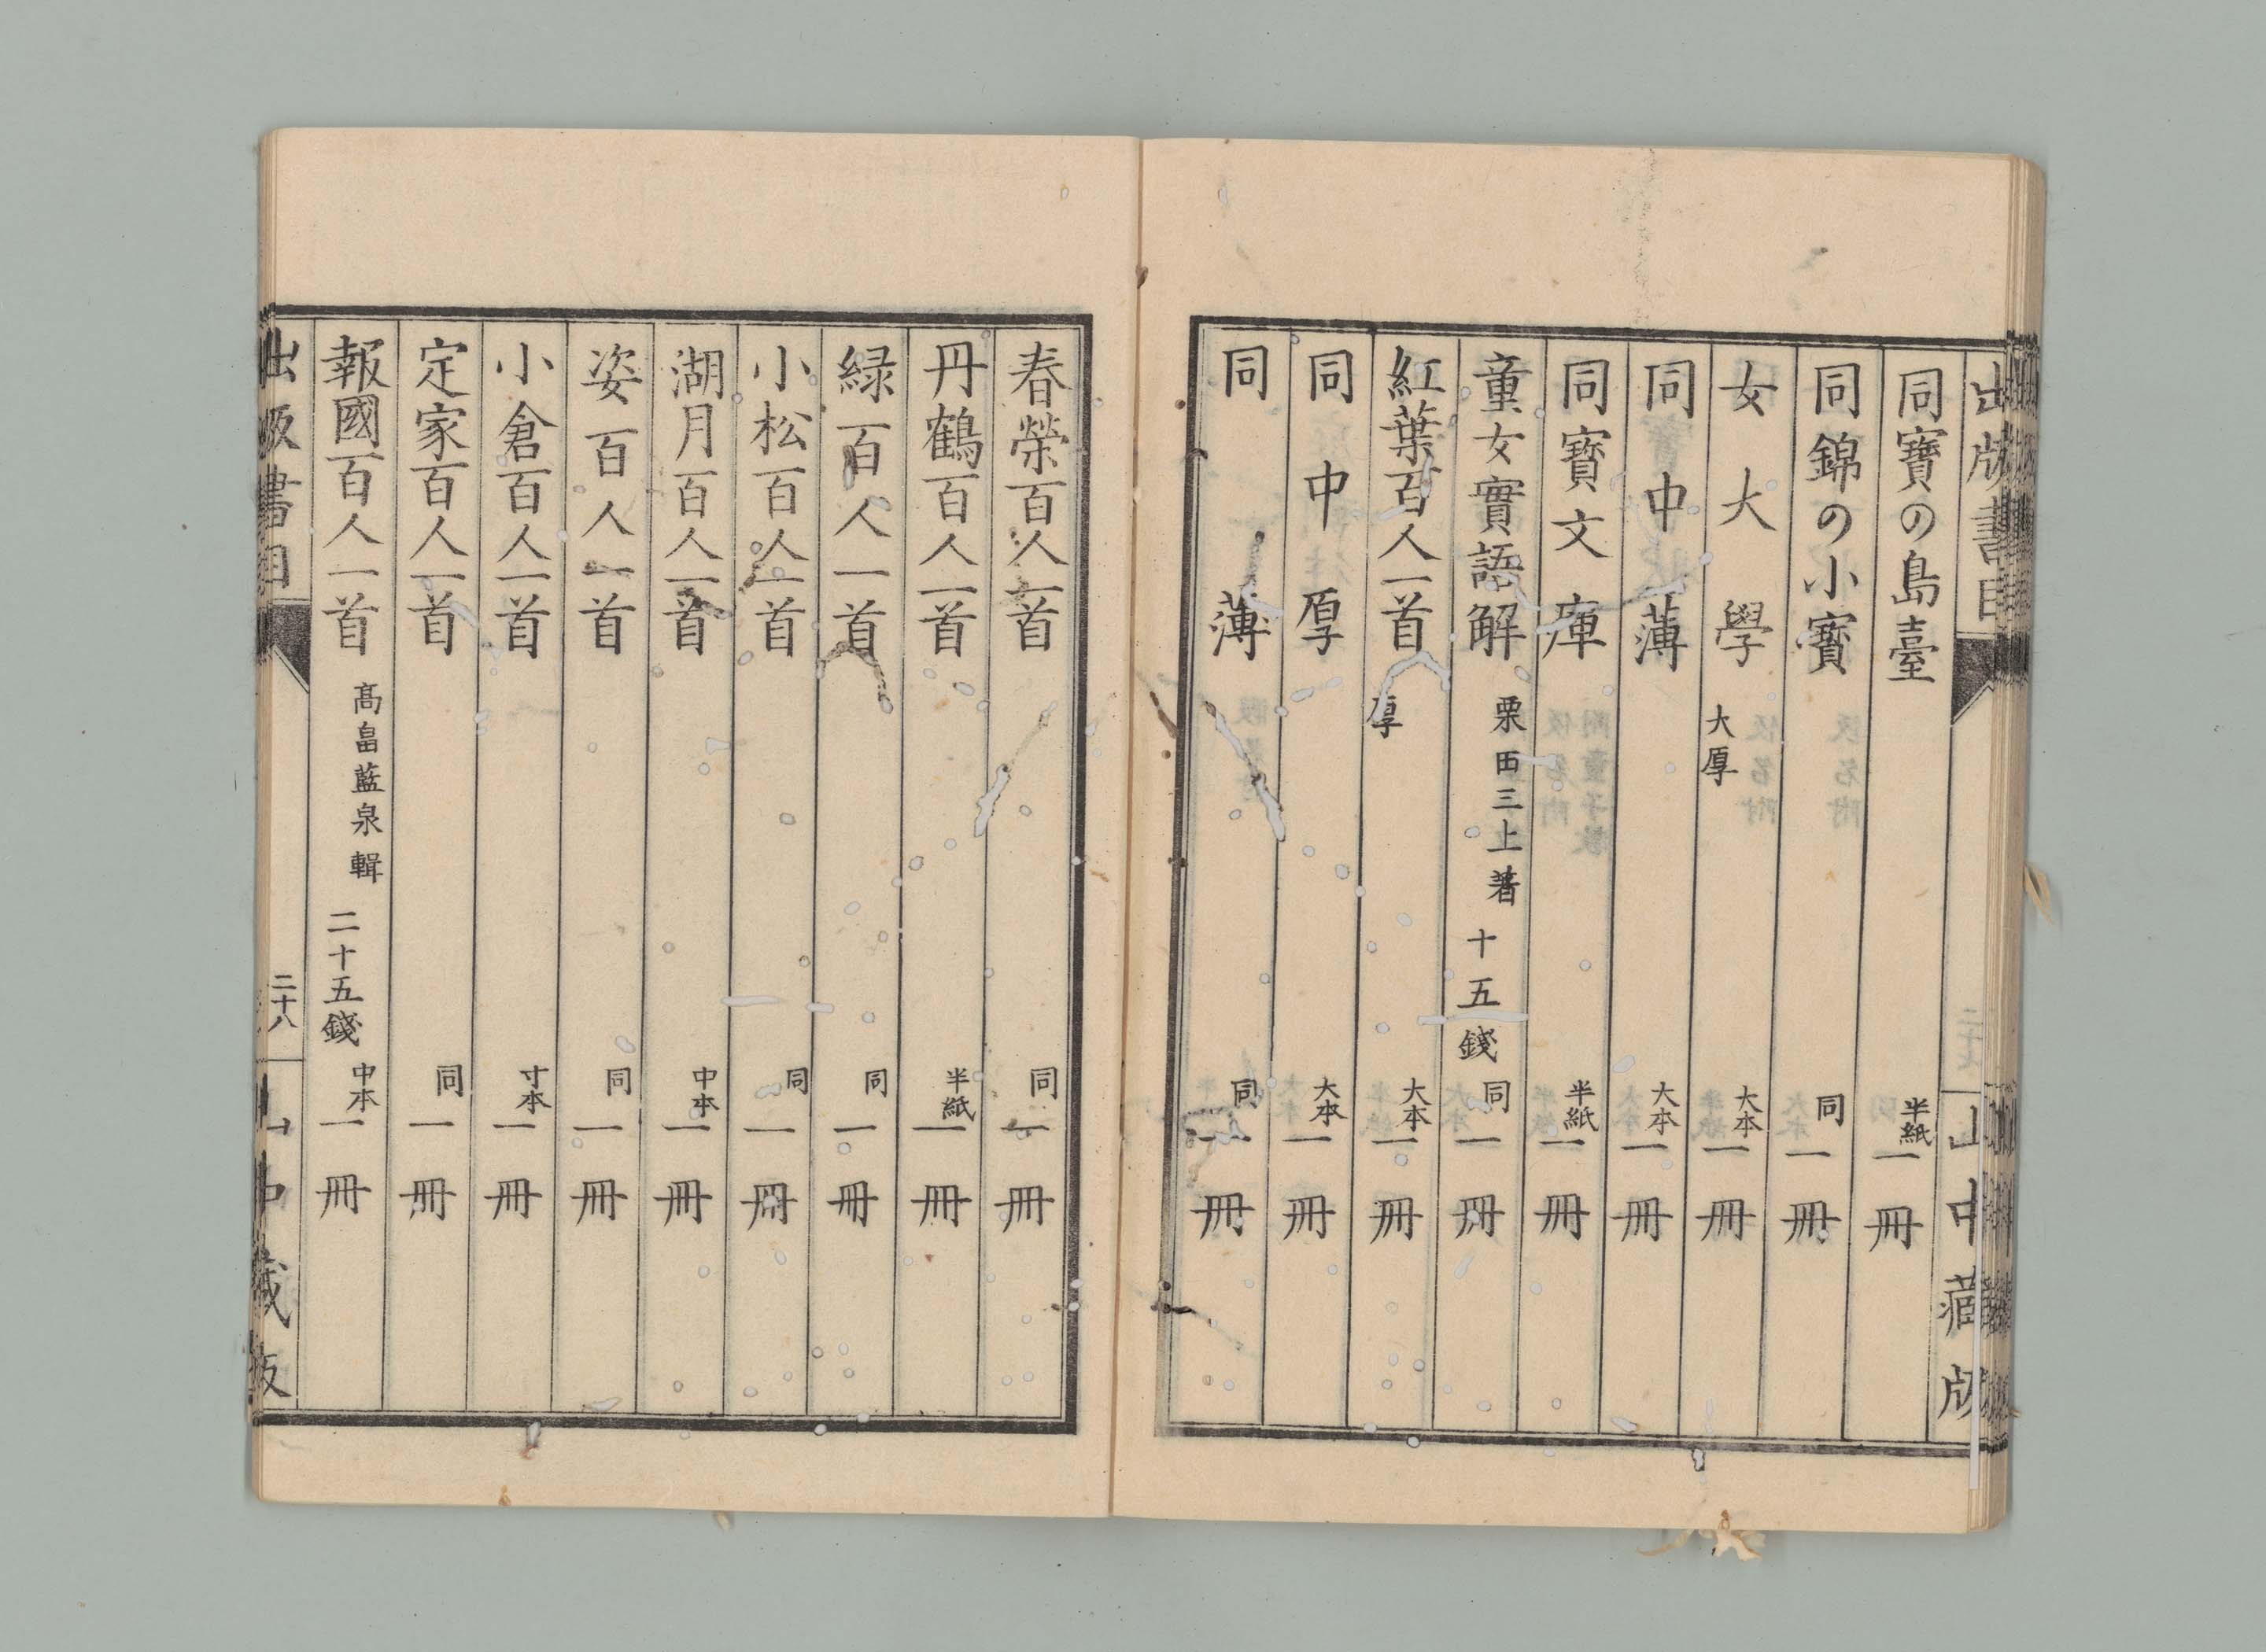 出版書目 山中藏版
同寶の島臺 半紙一冊
同錦の小寳 同一冊
女大學 大厚 大本一冊
同中薄 大本一冊
同寳文庫 半紙一冊
童女實語解 栗田三上著 十五錢 同一冊
紅葉百人一首 厚 大本一冊
同中厚 大本一冊
同薄 同一冊
春榮百人一首 同一冊
丹鶴百人一首 半紙一冊
緑百人一首 同一冊
小松百人一首 同一冊
湖月百人一首 中本一冊
姿百人一首 同一冊
小倉百人一首 寸本一冊
定家百人一首 同一冊
報國百人一首 髙畠藍泉輯 二十五錢 中本一冊
出版書目 二十八 山中藏版